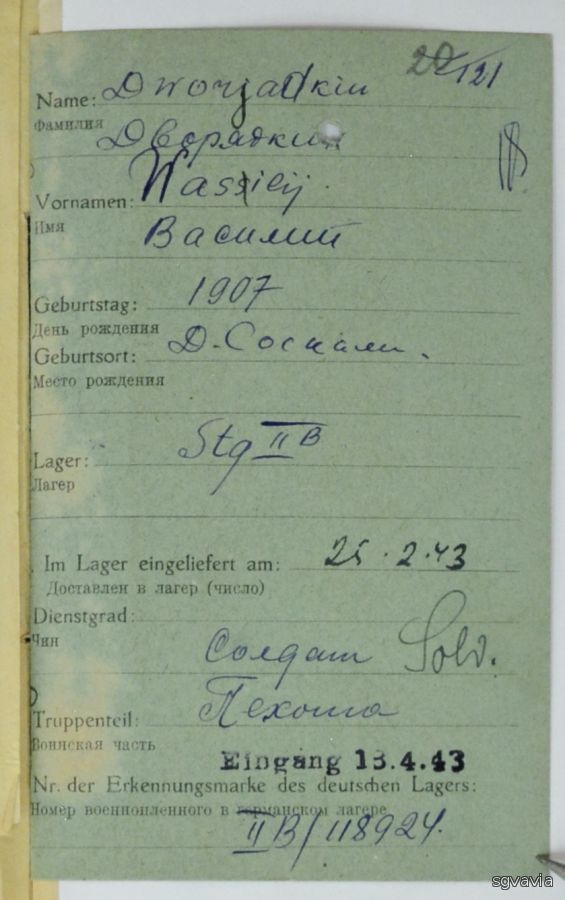 20/121
Name: Dworjadkin
Фамилия Дворядкин
Vornamen: Wassilij
Имя Василий
Geburtstag: 1907
День рождения
Geburtsort: Д. Соскали.
Место рождения
Lager: Stg II B
Лагер
Im Lager eingeliefert am: 25.2.43
Доставлен в лагер (число)
Dienstgrad:
Чин Солдат Sold.
Truppenteil: Пехота
Воинская часть
Eingang 13.4.43
Nr. der Erkennungsmarke des deutschen Lagers:
Номер военнопленного в германском лагере
II B/118924.
sgvavia